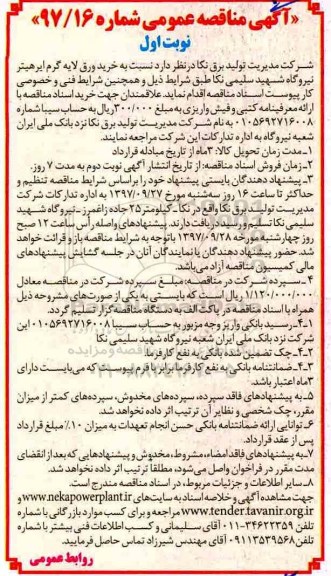 «آگهی مناقصه عمومی شماره ۹۷/۱۶»
نوبت اول
شرکت مدیریت تولید برق نکا درنظر دارد نسبت به خرید ورق لایه گرم ایرهیتر
نیروگاه شهید سلیمی نکا طبق شرایط ذیل و همچنین شرایط فنی و خصوصی
کار پیوست اسناد مناقصه اقدام نماید. علاقمندان جهت خرید اسناد مناقصه با
ارائه معرفینامه کتبی و فیش واریزی به مبلغ ۳۰۰/۰۰۰ ریال به حساب سیبا شماره
۰۱۰۵۶۹۲۷۱۶۰۰۸ به نام شرکت مدیریت تولید برق نکا نزد بانک ملی ایران
شعبه نیروگاه به اداره تدارکات این شرکت مراجعه نمایند.
۱-مدت زمان تحویل کالا: ۳ماه از تاریخ مبادله قرارداد
۲-زمان فروش اسناد مناقصه: از تاریخ انتشار آگهی نوبت دوم به مدت ۷ روز.
۳-پیشنهاد دهندگان بایستی پیشنهاد خود را براساس شرایط مناقصه تنظیم و
حداکثر تا ساعت ۱۶ روز سه‌شنبه مورخ ۱۳۹۷/۰۹/۲۷ به اداره تدارکات شرکت
مدیریت تولید برق نکا واقع در نکا-کیلومتر ۲۵ جاده زاغمرز-نیروگاه شهید
سلیمی نکا تسلیم و رسید دریافت دارند. پیشنهادهای واصله رأس ساعت ۱۲ صبح
روز چهارشنبه مورخه ۱۳۹۷/۰۹/۲۸ با توجه به شرایط مناقصه باز و قرائت خواهد
شد. حضور پیشنهاد دهندگان یا نمایندگان آنان در جلسه گشایش پیشنهادهای
مالی کمیسیون مناقصه آزاد می‌باشد.
۴-سپرده شرکت در مناقصه: مبلغ سپرده شرکت در مناقصه معادل
۱/۱۲۰/۰۰۰/۰۰۰ ریال است که بایستی به یکی از صورت‌های مشروحه ذیل
همراه با اسناد مناقصه در پاکت الف به دستگاه مناقصه‌گزار تسلیم گردد.
۴-۱-رسید بانکی واریز وجه مزبور به حساب سیبا ۰۱۰۵۶۹۲۷۱۶۰۰۸ این
شرکت نزد بانک ملی ایران شعبه نیروگاه شهید سلیمی نکا
۴-۲-چک تضمین شده بانکی به نفع کارفرما.
۴-۳-ضمانتنامه بانکی به نفع کارفرما برابر با فرم پیوست که می‌بایست دارای
۳ماه اعتبار باشد.
۵-به پیشنهادهای فاقد سپرده، سپرده‌های مخدوش، سپرده‌های کمتر از میزان
مقرر، چک شخصی و نظایر آن ترتیب اثر داده نخواهد شد.
۶-توانایی ارائه ضمانتنامه بانکی حسن انجام تعهدات به میزان ۱۰٪ مبلغ قرارداد
پس از عقد قرارداد.
۷-به پیشنهادهای فاقد امضاء، مشروط، مخدوش و پیشنهادهایی که بعد از انقضای
مدت مقرر در فراخوان واصل می‌شود، مطلقا ترتیب اثر داده نخواهد شد.
۸-سایر اطلاعات و جزئیات مربوط، در اسناد مناقصه مندرج است.
جهت مشاهده آگهی و خلاصه اسناد به سایت‌های www.nekapowerplant.ir و
www.tender.tavanir.org.ir مراجعه و برای کسب موارد بازرگانی با شماره
تلفن ۳۴۶۲۲۳۵۹-۰۱۱ آقای سلیمانی و کسب اطلاعات فنی بیشتر با شماره
تلفن ۰۹۱۱۳۵۳۹۵۶۸ آقای مهندس شیرزاد تماس حاصل فرمایید.
روابط عمومی